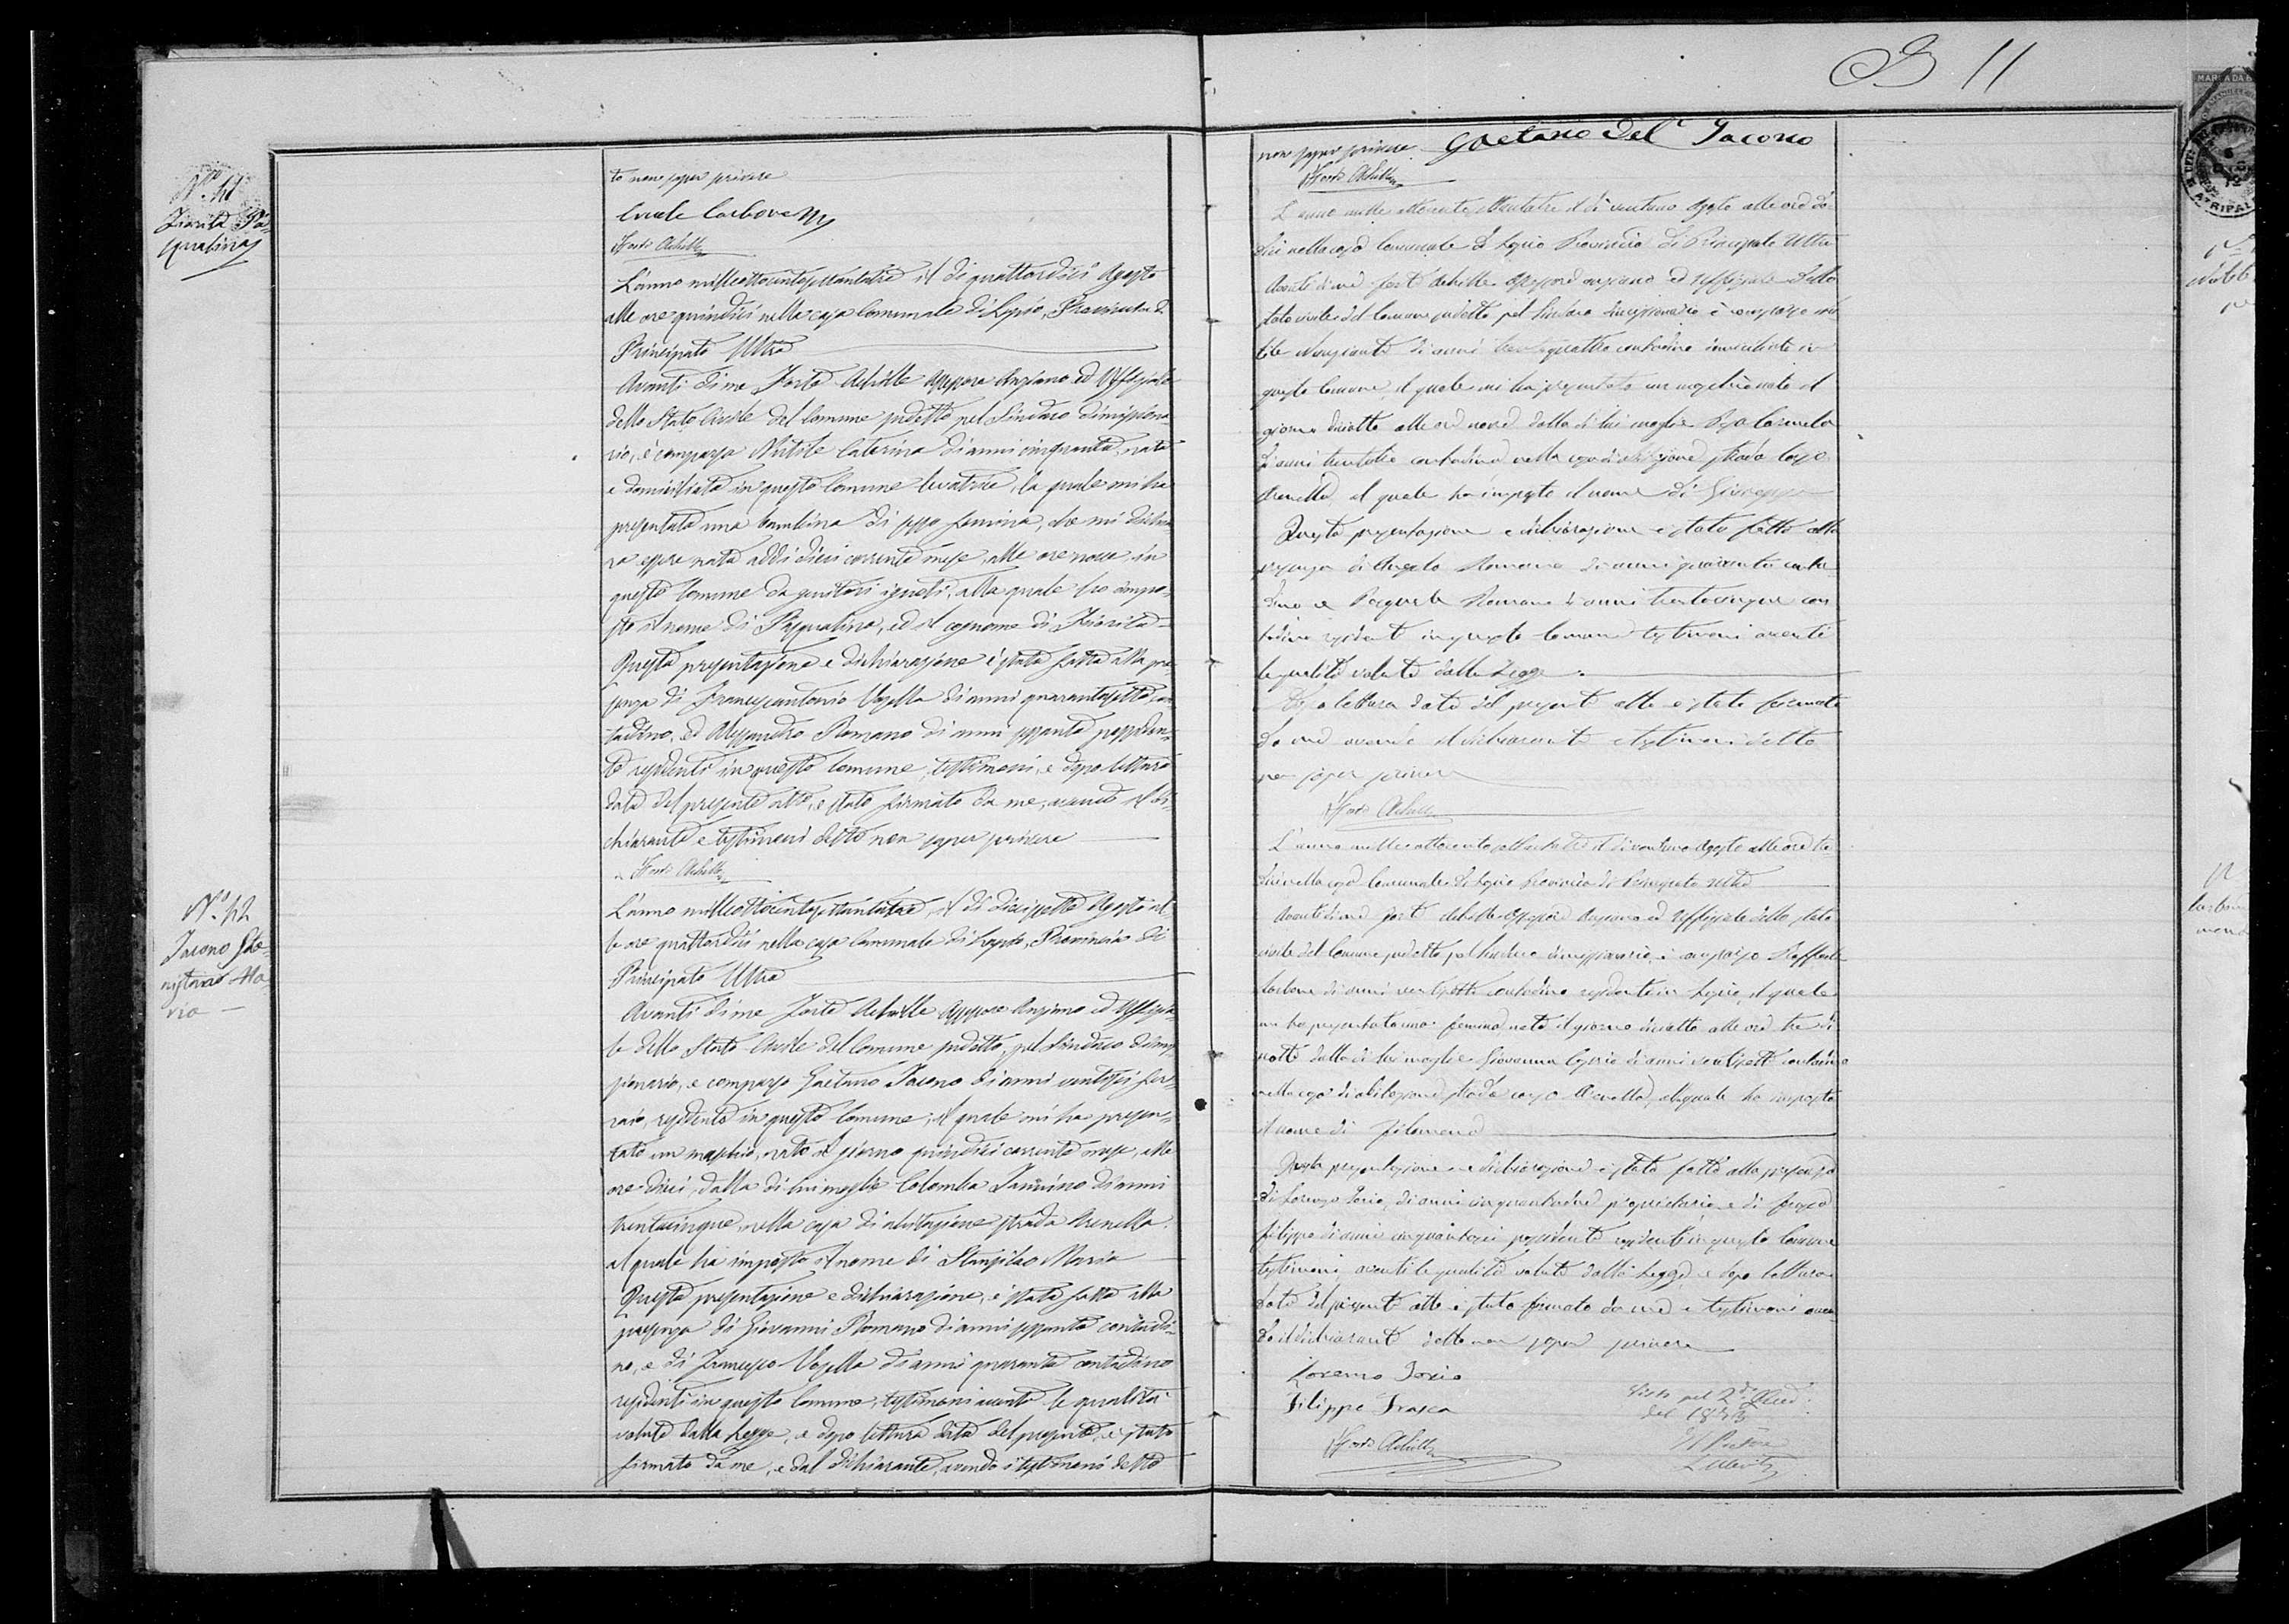 B 11
N.º 41
Fiorita Pa-
squalina
to non saper scrivere
Carbone
Forte Achille
L'anno milleottocentosettantatre il dì quattordici Agosto
alle ore quindici nella casa Comunale di Lapio, Provincia di
Principato Ultra
Avanti di me Forte Achille Assessore Anziano ed Uffiziale
dello Stato Civile del Comune sudetto pel Sindaco dimissiona-
rio, è comparsa Nutile Caterina di anni cinquanta, nata
e domiciliata in questo Comune levatrice, la quale mi ha
presentata una bambina di sesso femina, che mi dichia-
ra essere nata addì dieci corrente mese, alle ore nove, in
questo Comune da genitori ignoti, alla quale ho impo-
sto il nome di Pasqualina, ed il cognome di Fiorita
Questa presentazione e dichiarazione è stata fatta alla pre-
senza di Francescantonio Vozella di anni quarantasette con-
tadino, ed Alessandro Romano di anni sessanta possiden-
te residenti in questo Comune, testimoni, e dopo lettura
data del presente atto, è stato firmato da me, avendo il di-
chiarante e testimoni detto non saper scrivere
Forte Achille
N.º 42
Iacono Sta-
nislao Ma-
ria
L'anno milleottocentosettantatre, il dì diecissette Agosto al-
le ore quattordici nella casa Comunale di Lapio, Provincia di
Principato Ultra
Avanti di me Forte Achille Assessore Anziano ed Uffizia-
le dello Stato Civile del Comune sudetto, pel Sindaco dimis-
sionario, è comparso Gaetano Iacono di anni ventisei
residente in questo Comune, il quale mi ha presen-
tato un maschio, nato il giorno quindici corrente mese, alle
ore dieci, dalla di lui moglie Colomba Iannino di anni
trentacinque, nella casa di abitazione strada Arenella
al quale ha imposto il nome di Stanislao Maria
Questa presentazione e dichiarazione, è stata fatta alla
presenza di Giovanni Romano di anni sessanta contadi-
no, e di Francesco Vozella di anni quaranta contadino
residenti in questo Comune, testimoni aventi le qualità
volute dalla Legge, e dopo lettura data del presente, è stato
firmato da me, e dal dichiarante, avendo i testimoni detto
non saper scrivere. Gaetano Del Iacono
Forte Achille
L'anno mille ottocento settantatre il dì ventuno Agosto alle ore do-
dici nella casa Comunale di Lapio Provincia di Principato Ultra
Avanti di me Forte Achille Assessore anziano ed Uffiziale dello
stato civile del Comune sudetto pel Sindaco dimissionario è comparso Nu-
tile di anni trentaquattro contadino in
questo Comune, il quale mi ha presentato un maschio nato il
giorno diciotto alle ore nove dalla di lui moglie Carmela
di anni trentatre contadina nella casa di abitazione strada
Arenella, al quale ha imposto il nome di Giuseppe
Questa presentazione e dichiarazione è stata fatta alla
presenza di Angelo Romano di anni quaranta conta-
dino e Pasquale Romano di anni trentacinque con-
tadino residenti in questo Comune testimoni aventi
le qualità volute dalla Legge
Dopo lettura data del presente atto è stato firmato
da me avendo il dichiarante e testimoni detto
non saper scrivere
Forte Achille
L'anno mille ottocento settantatre il dì ventuno Agosto alle ore tre-
dici nella casa Comunale di Lapio Provincia di Principato Ultra
Avanti di me Forte Achille Assessore Anziano ed Uffiziale dello stato
civile del Comune sudetto pel Sindaco dimissionario, è comparso Raffaele
Carbone di anni ventisette contadino residente in Lapio, il quale
mi ha presentata una femina nata il giorno diciotto alle ore tre di
notte dalla di lui moglie Giovanna di anni ventisette contadina
nella casa di abitazione strada Arenella, alla quale ha imposto
il nome di Filomena
Questa presentazione e dichiarazione è stata fatta alla presenza
di Lorenzo Iorio, di anni proprietario e di
Filippo di anni possidente residenti in questo Comune
testimoni aventi le qualità volute dalla Legge, e dopo lettura
data del presente atto è stato firmato da me e testimoni aven-
do il dichiarante detto non saper scrivere
Lorenzo Iorio
Filippo Frasca
Forte Achille
Visto pel 2º
del 1873
Il Pretore
MARCA DA B
ATRIPAL